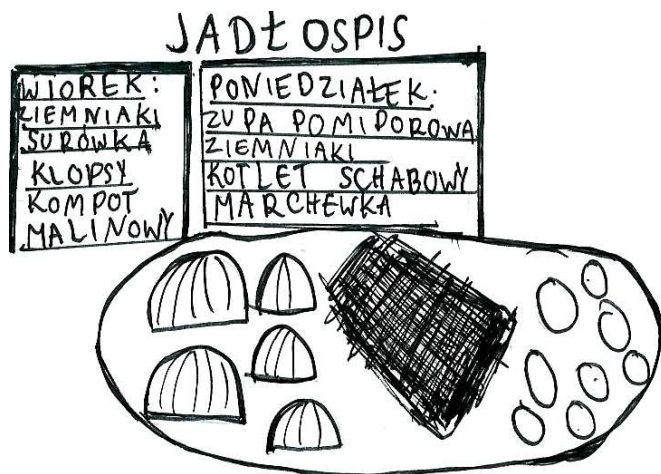 JADŁOSPIS
WIOREK:
ZIEMNIAKI
SURÓWKA
KLOPSY
KOMPOT
MALINOWY
PONIEDZIAŁEK:
ZUPA POMIDOROWA
ZIEMNIAKI
KOTLET SCHABOWY
MARCHEWKA